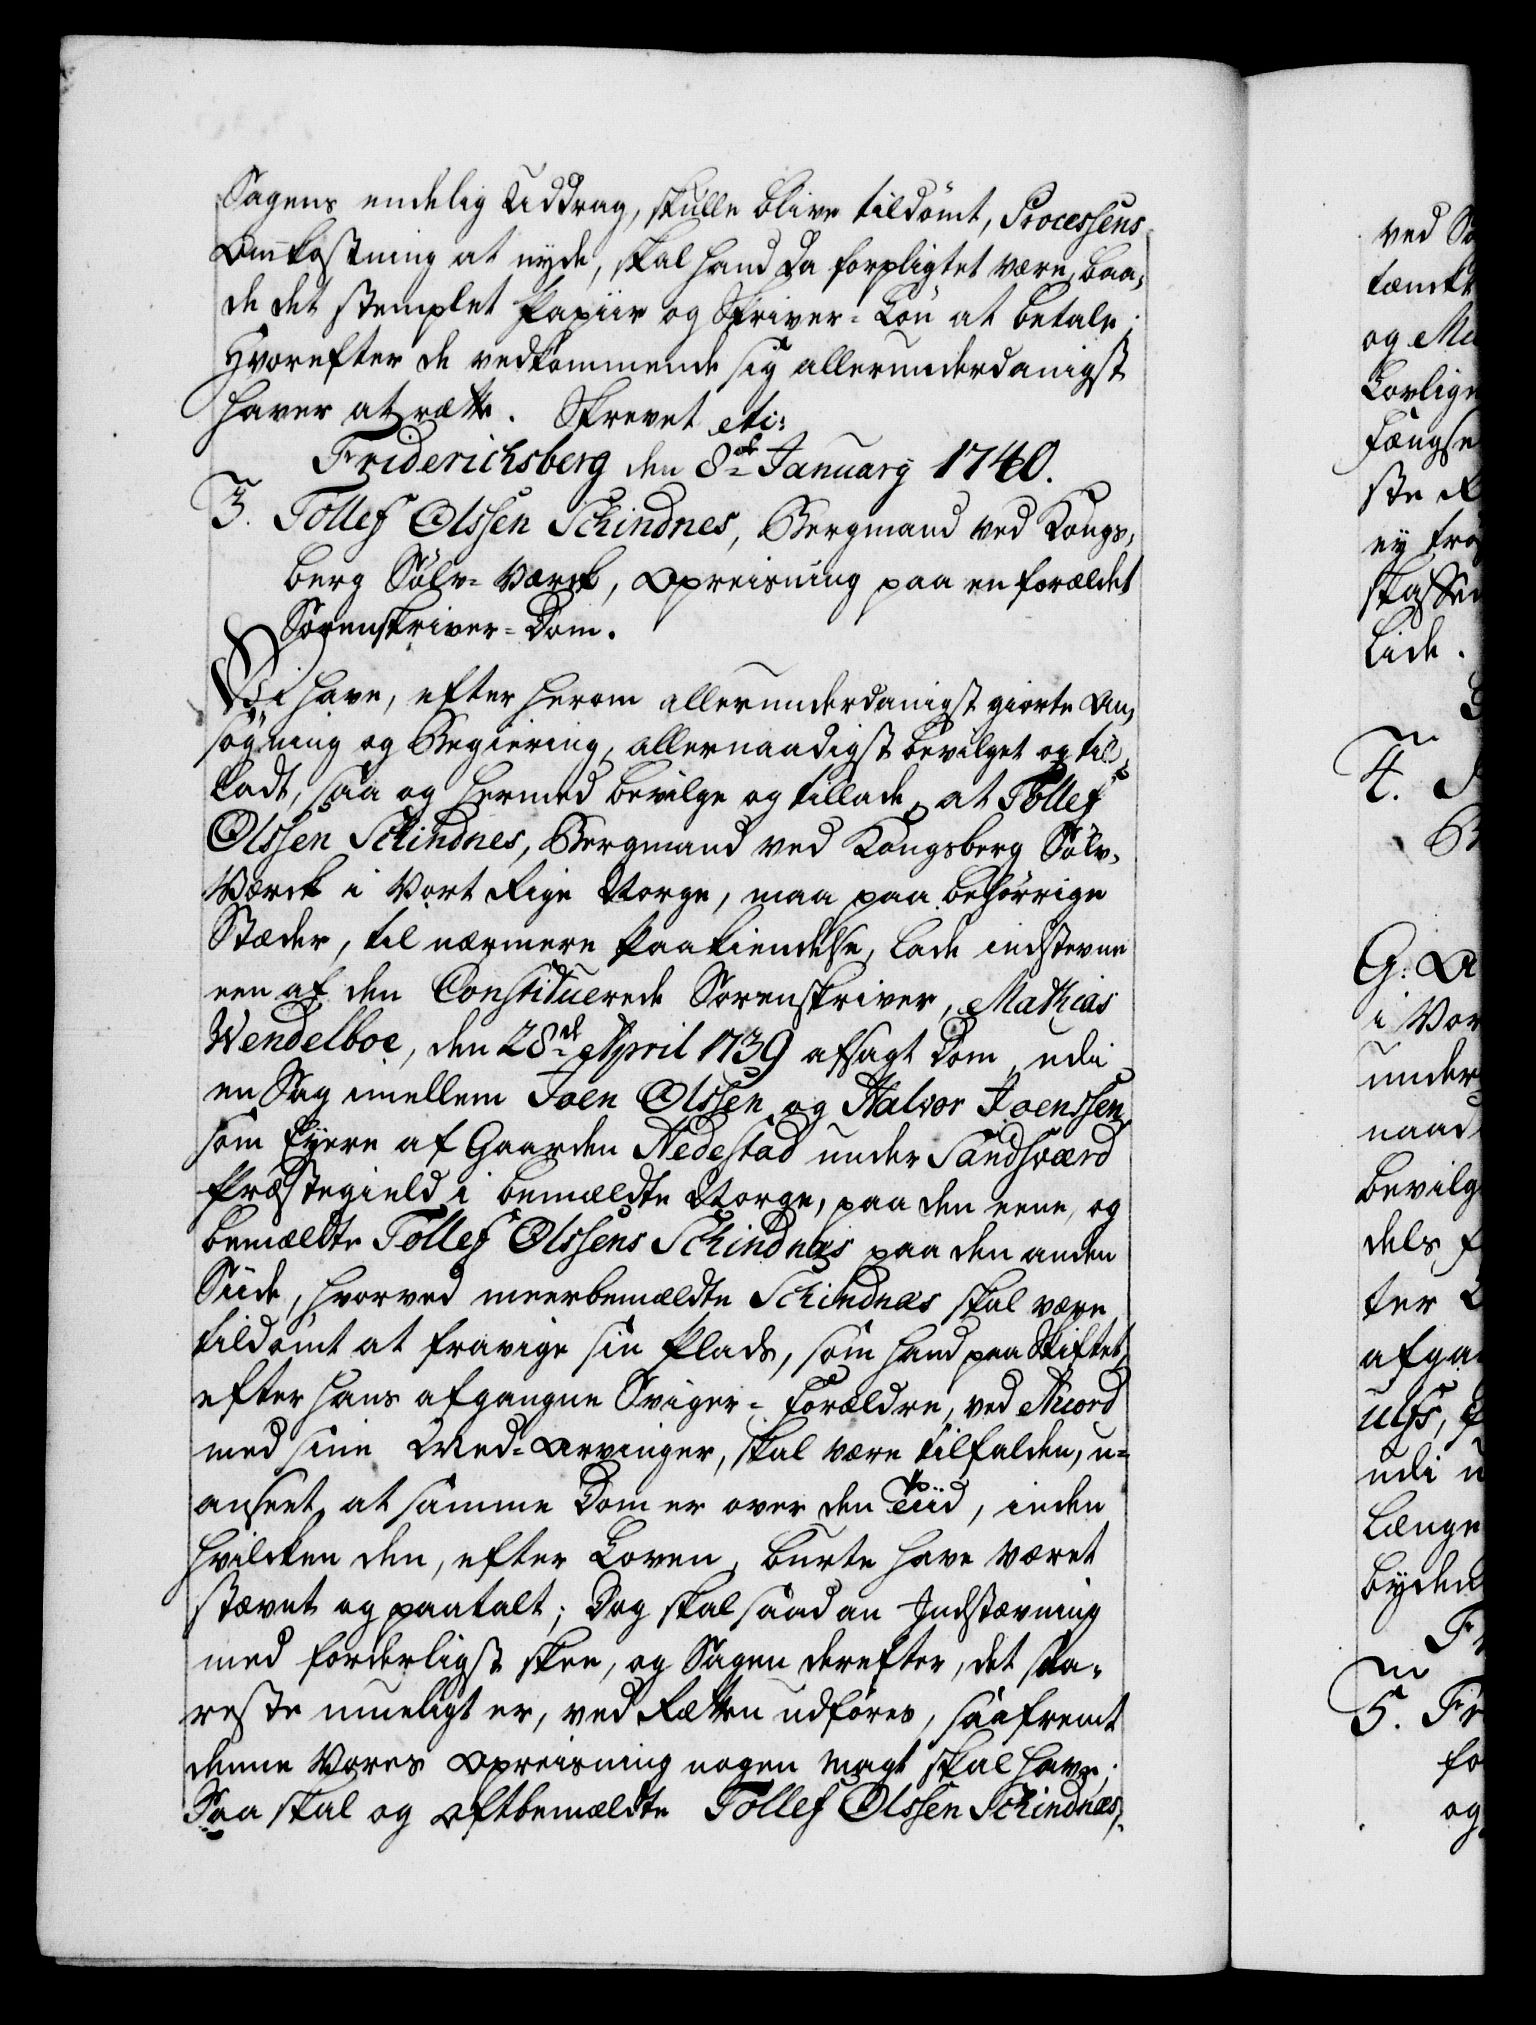 Sagens endelig Uddrag, skulle blive tildömt, Processens
Omkostning at nyde, skal hand da forpligtet være, baa-
de det stemplet Papiir og Skriver-Lön at betale.
Hvorefter de vedkommende sig allerunderdanigst
haver at rætte. Skrevet etc:
Friderichsberg den 8de January 1740.
3. Tollef Olssen Schindnes, Bergmand ved Kongs-
berg Sölv-Værck, Opreisning paa en forældet
Sorenskriver-Dom.
Vi have, efter herom allerunderdanigst giorte An-
søgning og Begiering, allernaadigst bevilget og til-
ladt, saa og hermed bevilge og tillade, at Tollef
Olssen Schindnes, Bergmand ved Kongsberg Sölv-
Værck i Vort Rige Norge, maa paa behörrige
Stæder, til nærmere Paakiendelse, lade indstevne
een af den Constituerede Sorenskriver, Mathias
Wendelboe, den 28de April 1739 afsagt Dom, udi
en Sag imellem Joen Olssen og Halvor Joenssen,
som Eyere af Gaarden Hedestad under Sandsværd
Præstegield i bemældte Norge, paa den eene, og
bemældte Tollef Olssens Schindnæs paa den anden
Siide, hvorved meerbemældte Schindnæs skal være
tildömt at fravige sin Plads, som hand paa Skiftet,
efter hans afgangne Sviger-Forældre, ved Accord
med sine Med-Arvinger, skal være tilfalden, u-
anseet, at samme Dom er over den Tiid, inden
hvilcken den, efter Loven, burte have været
stævnt og paatalt; Dog skal saadan Indstævning
med forderligst skee, og Sagen derefter, det sna-
reste mueligt er, ved Rætten udföres, saafremt
denne Vores Opreisning nogen Magt skal have;
Saa skal og oftbemældte Tollef Olssen Schindnæs,
ved
tænckt
og
Lovlige
ste
ey
lide.
4.
i Vor
under
naad
bevilg
dels
ter
afga
udi
længe
byden
5. Fr
fo
og